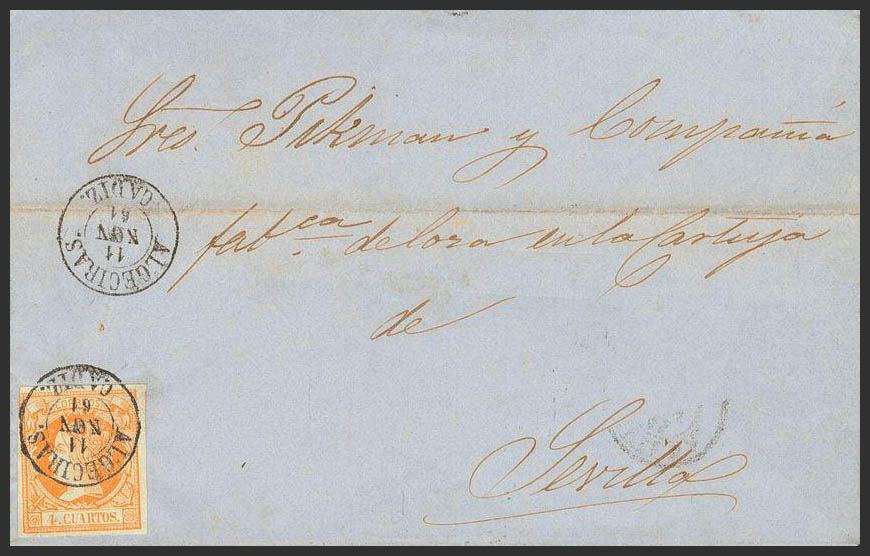 Sres. Pikman y Compañia
fabca. de loza en la Cartuja
de
Sevilla
ALGECIRAS
11
NOV
61
CADIZ.
ALGECIRAS
11
NOV
61
CADIZ.
4 CUARTOS.